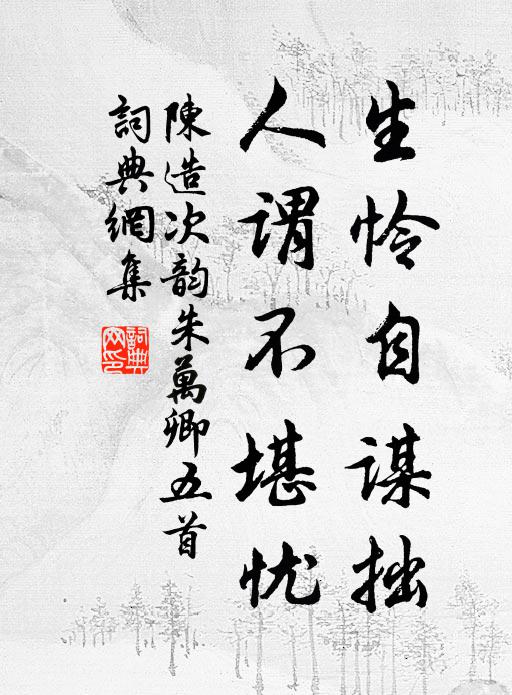 生怜自谋拙
人谓不堪忧
陳造次韵朱萬卿五首
詞典網集
詞典
网印